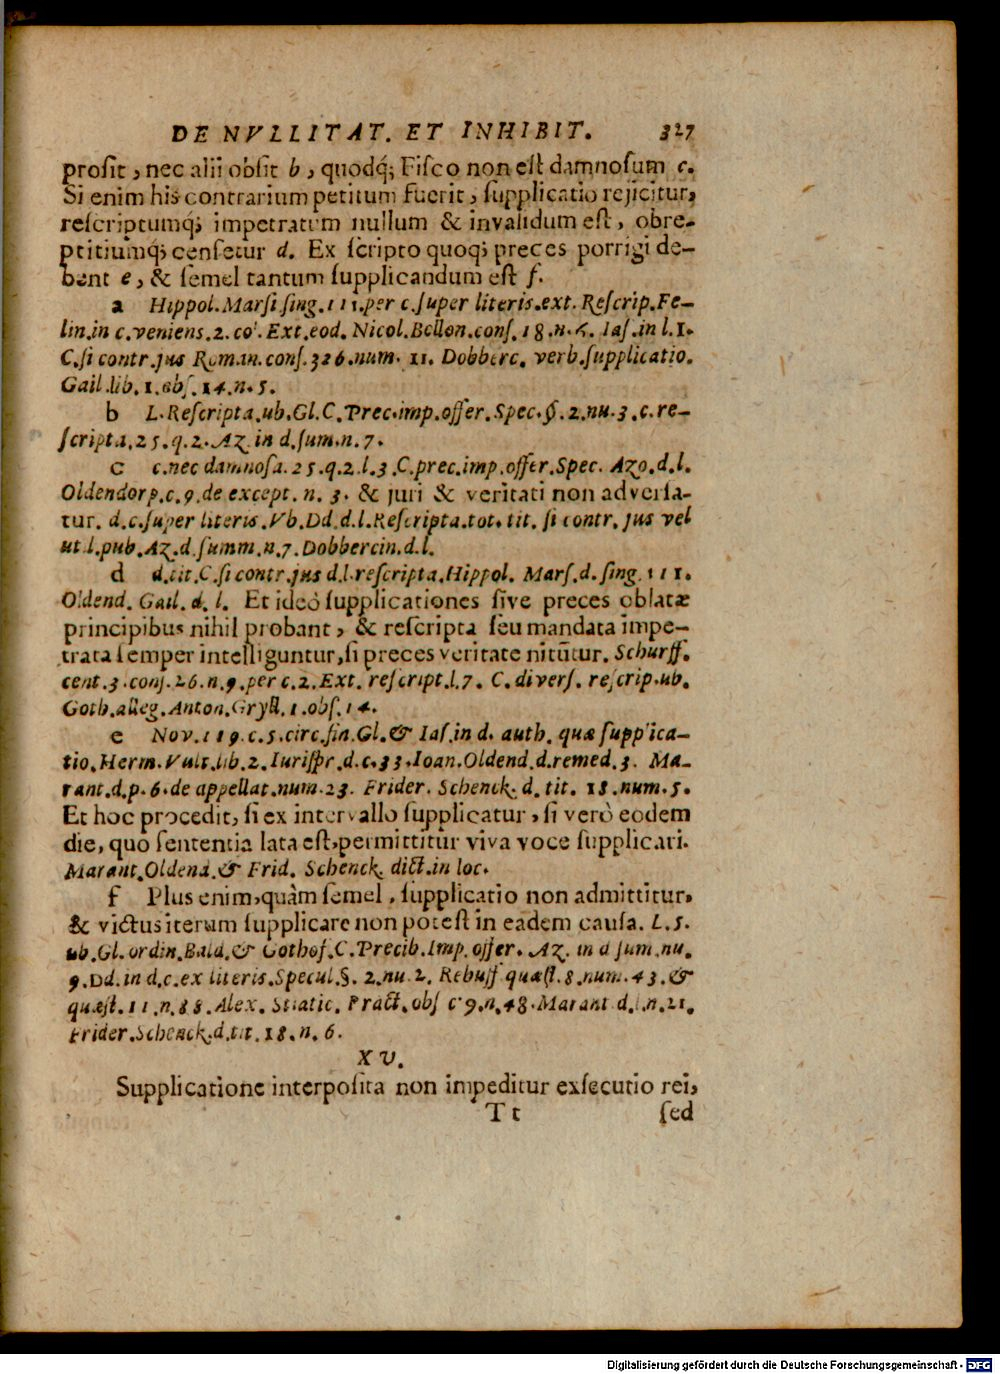 DE NVLLITAT. ET INHIBIT. 327
prosit, nec alii obsit b, quodq́; Fisco non est damnosum c.
Si enim his contrarium petitum fuerit, supplicatio rejicitur,
rescriptumq́; impetratum nullum & invalidum est, obre-
ptitiumq́; censetur d. Ex scripto quoq; preces porrigi de-
bent e, & semel tantum supplicandum est f.
a Hippol. Marsi sing. 111. per c. super literis. ext. Rescrip. Fe-
lin. in c. veniens. 2. co'. Ext. eod. Nicol. Bellon. cons. 18. n. 4. Ias. in l. 1.
C. si contr. jus Roman. cons. 326. num. 11. Dobberc. verb. supplicatio.
Gail. lib. 1. obs. 14. n. 5.
b L. Rescripta. ub. Gl. C. Prec. imp. offer. Spec. §. 2. nu. 3. c. re-
scripta. 25. q. 2. Az. in d. sum. n. 7.
c c. nec damnosa. 25. q. 2. l. 3. C. prec. imp. offer. Spec. Azo. d. l.
Oldendorp. c. 9. de except. n. 3. & juri & veritati non adversa-
tur. d. c. super literis. Vb. Dd. d. l. Rescripta. tot. tit. si contr. jus vel
ut. l. pub. Az. d. summ. n. 7. Dobbercin. d. l.
d d. tit. C. si contr. jus d. l. rescripta. Hippol. Mars. d. sing. 111.
Oldend. Gail. d. l. Et ideò supplicationes sive preces oblatæ
principibus nihil probant, & rescripta seu mandata impe-
trata semper intelliguntur, si preces veritate nitūtur. Schurff.
cent. 3. cons. 26. n. 9. per c. 2. Ext. rescript. l. 7. C. divers. rescrip. ub.
Goth. alleg. Anton. Gryll. 1. obs. 14.
e Nov. 119. c. 5. circ. fin. Gl. & Ias. in d. auth. quæ supplica-
tio. Herm. Vult. lib. 2. Iurispr. d. c. 33. Ioan. Oldend. d. remed. 3. Ma-
rant. d. p. 6. de appellat. num. 23. Frider. Schenck. d. tit. 18. num. 5.
Et hoc procedit, si ex intervallo supplicatur, si verò eodem
die, quo sententia lata est, permittitur viva voce supplicari.
Marant. Oldend. & Frid. Schenck. dict. in loc.
f Plus enim, quàm semel, supplicatio non admittitur,
& victus iterum supplicare non potest in eadem causa. L. 5.
ub. Gl. ordin. Bald. & Gothof. C. Precib. Imp. offer. Az. in d sum. nu.
9. Dd. in d. c. ex literis. Specul. §. 2. nu. 2. Rebuff quæst. 8. num. 43. &
quæst. 11. n. 88. Alex. Stiatic. Pract. obs c 9. n. 48. Marant d. l. n. 21.
Frider. Schenck. d. tit. 18. n. 6.
XV.
Supplicatione interposita non impeditur exsecutio rei,
Tt sed
Digitalisierung gefördert durch die Deutsche Forschungsgemeinschaft - DFG